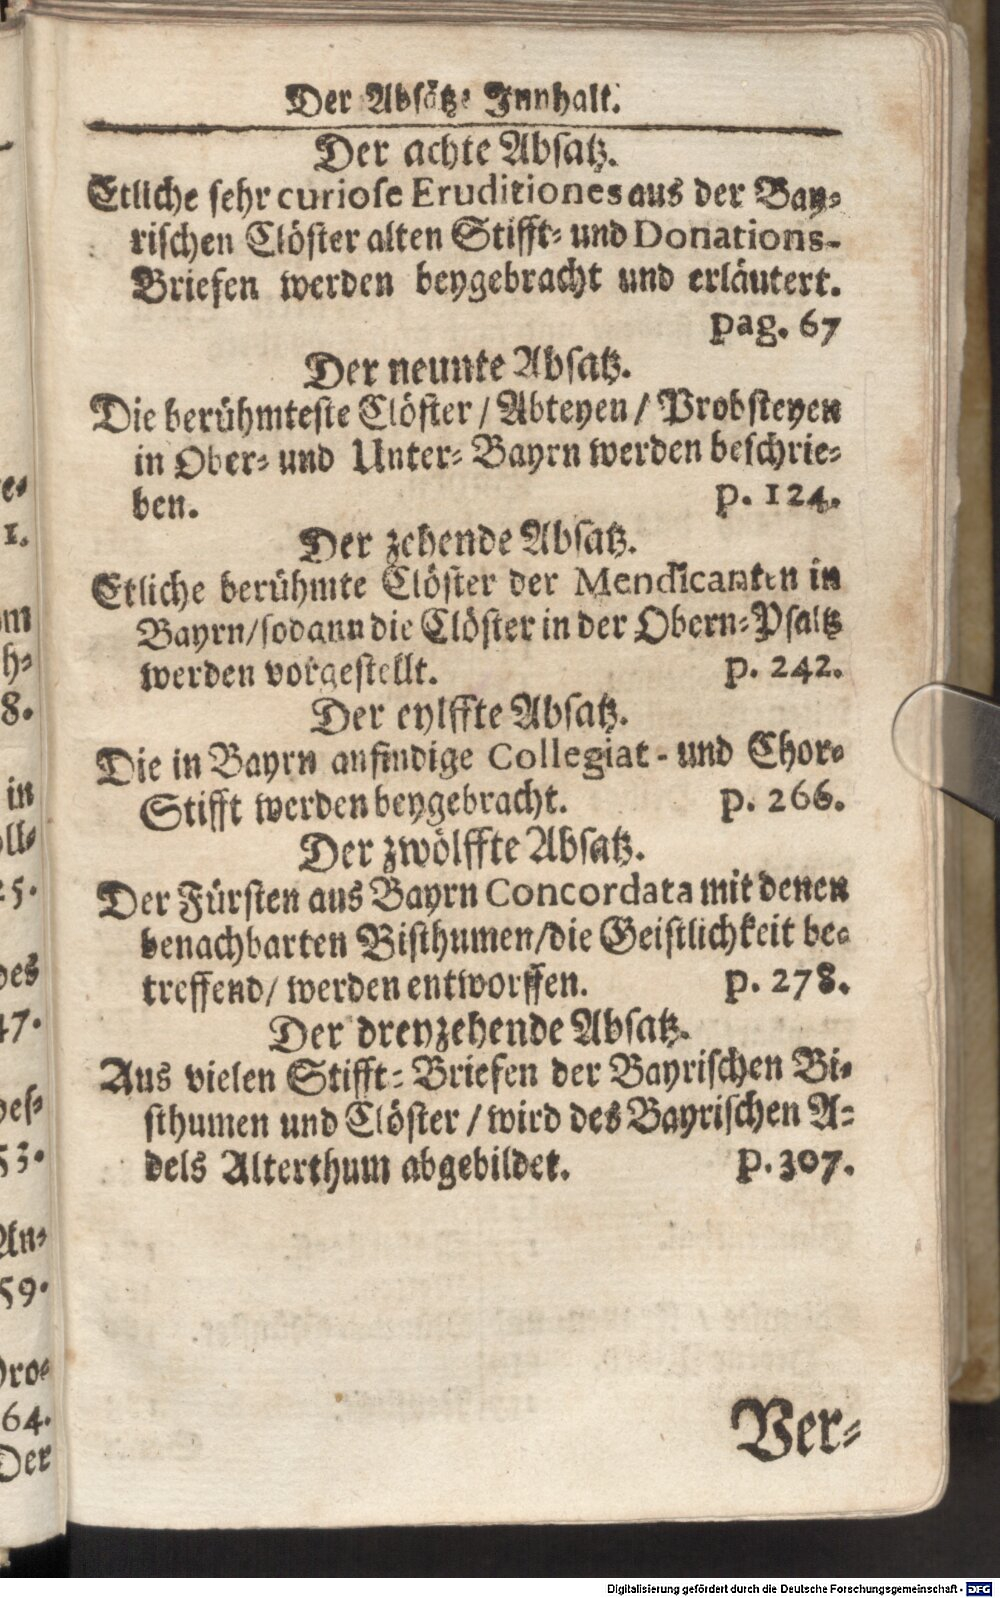 Der Absätze Innhalt.
Der achte Absatz.
Etliche sehr curiose Eruditiones aus der Bay-
rischen Clöster alten Stifft- und Donations-
Briefen werden beygebracht und erläutert.
pag. 67
Der neunte Absatz.
Die berühmteste Clöster / Abteyen / Probsteyen
in Ober- und Unter- Bayrn werden beschrie-
ben. p. 124.
Der zehende Absatz.
Etliche berühmte Clöster der Mendicanten in
Bayrn/ sodann die Clöster in der Obern-Psaltz
werden vorgestellt. p. 242.
Der eylffte Absatz.
Die in Bayrn anfindige Collegiat- und Chor-
Stifft werden beygebracht. p. 266.
Der zwölffte Absatz.
Der Fürsten aus Bayrn Concordata mit denen
benachbarten Bisthumen/die Geistlichkeit be-
treffend/ werden entworffen. p. 278.
Der dreyzehende Absatz.
Aus vielen Stifft-Briefen der Bayrischen Bi-
sthumen und Clöster / wird des Bayrischen A-
dels Alterthum abgebildet. p. 307.
Ver-
Digitalisierung gefördert durch die Deutsche Forschungsgemeinschaft - DFG